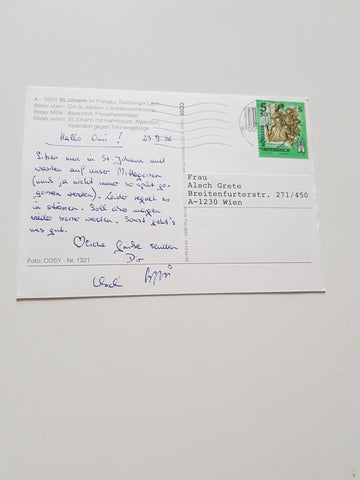 A - 5600 St.Johann im Pongau, Salzburger Land
Bilder oben: Ort St.Johann, Liechtensteinklamm
Bilder Mitte: Alpendorf, Freischwimmbad
Bilder unten: St.Johann mit Hahnbaum, Alpendorf
Alpendorf gegen Tennengebirge
Hallo Omi! 23.9.96
Sitzen nun in St. Johann und
warten auf unser Mittagessen
(muß ja nicht immer so spät ge-
gessen werden). Leider regnet es
in Strömen. Soll aber morgen
wieder schöner werden. Sonst geht's
uns gut.
Liebe Grüße senden
Dir
Foto: COSY - Nr. 1321
COSY
5
50
5
ÖSTERREICH
Frau
Alsch Grete
Breitenfurterstr. 271/450
A-1230 Wien